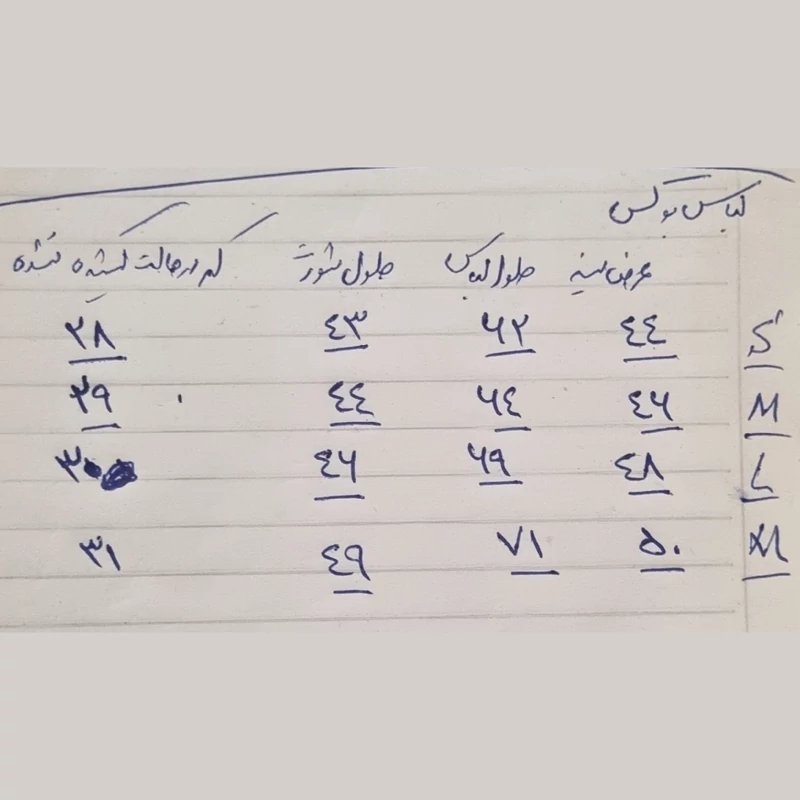 لباس بوکس
عرض سینه طول لباس طول شورت کمر در حالت کشیده نشده
S ٤٤ ۶۲ ٤۳ ۲۸
M ٤۶ ۶٤ ٤٤ ۲۹
L ٤۸ ۶۹ ٤۶ ۳۰
XL ۵۰ ۷۱ ٤۹ ۳۱